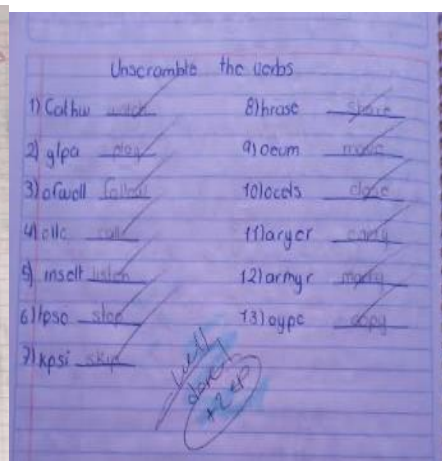 Unscramble the verbs
1) Cathw watch
2) ylpa play
3) ofwoll follow
4) cllc call
5) inselt listen
6) tpso stop
7) kpsi skip
8) hrase share
9) oeum move
10) ocels close
11) arycr carry
12) armyr marry
13) oypc copy
well
done!
+2